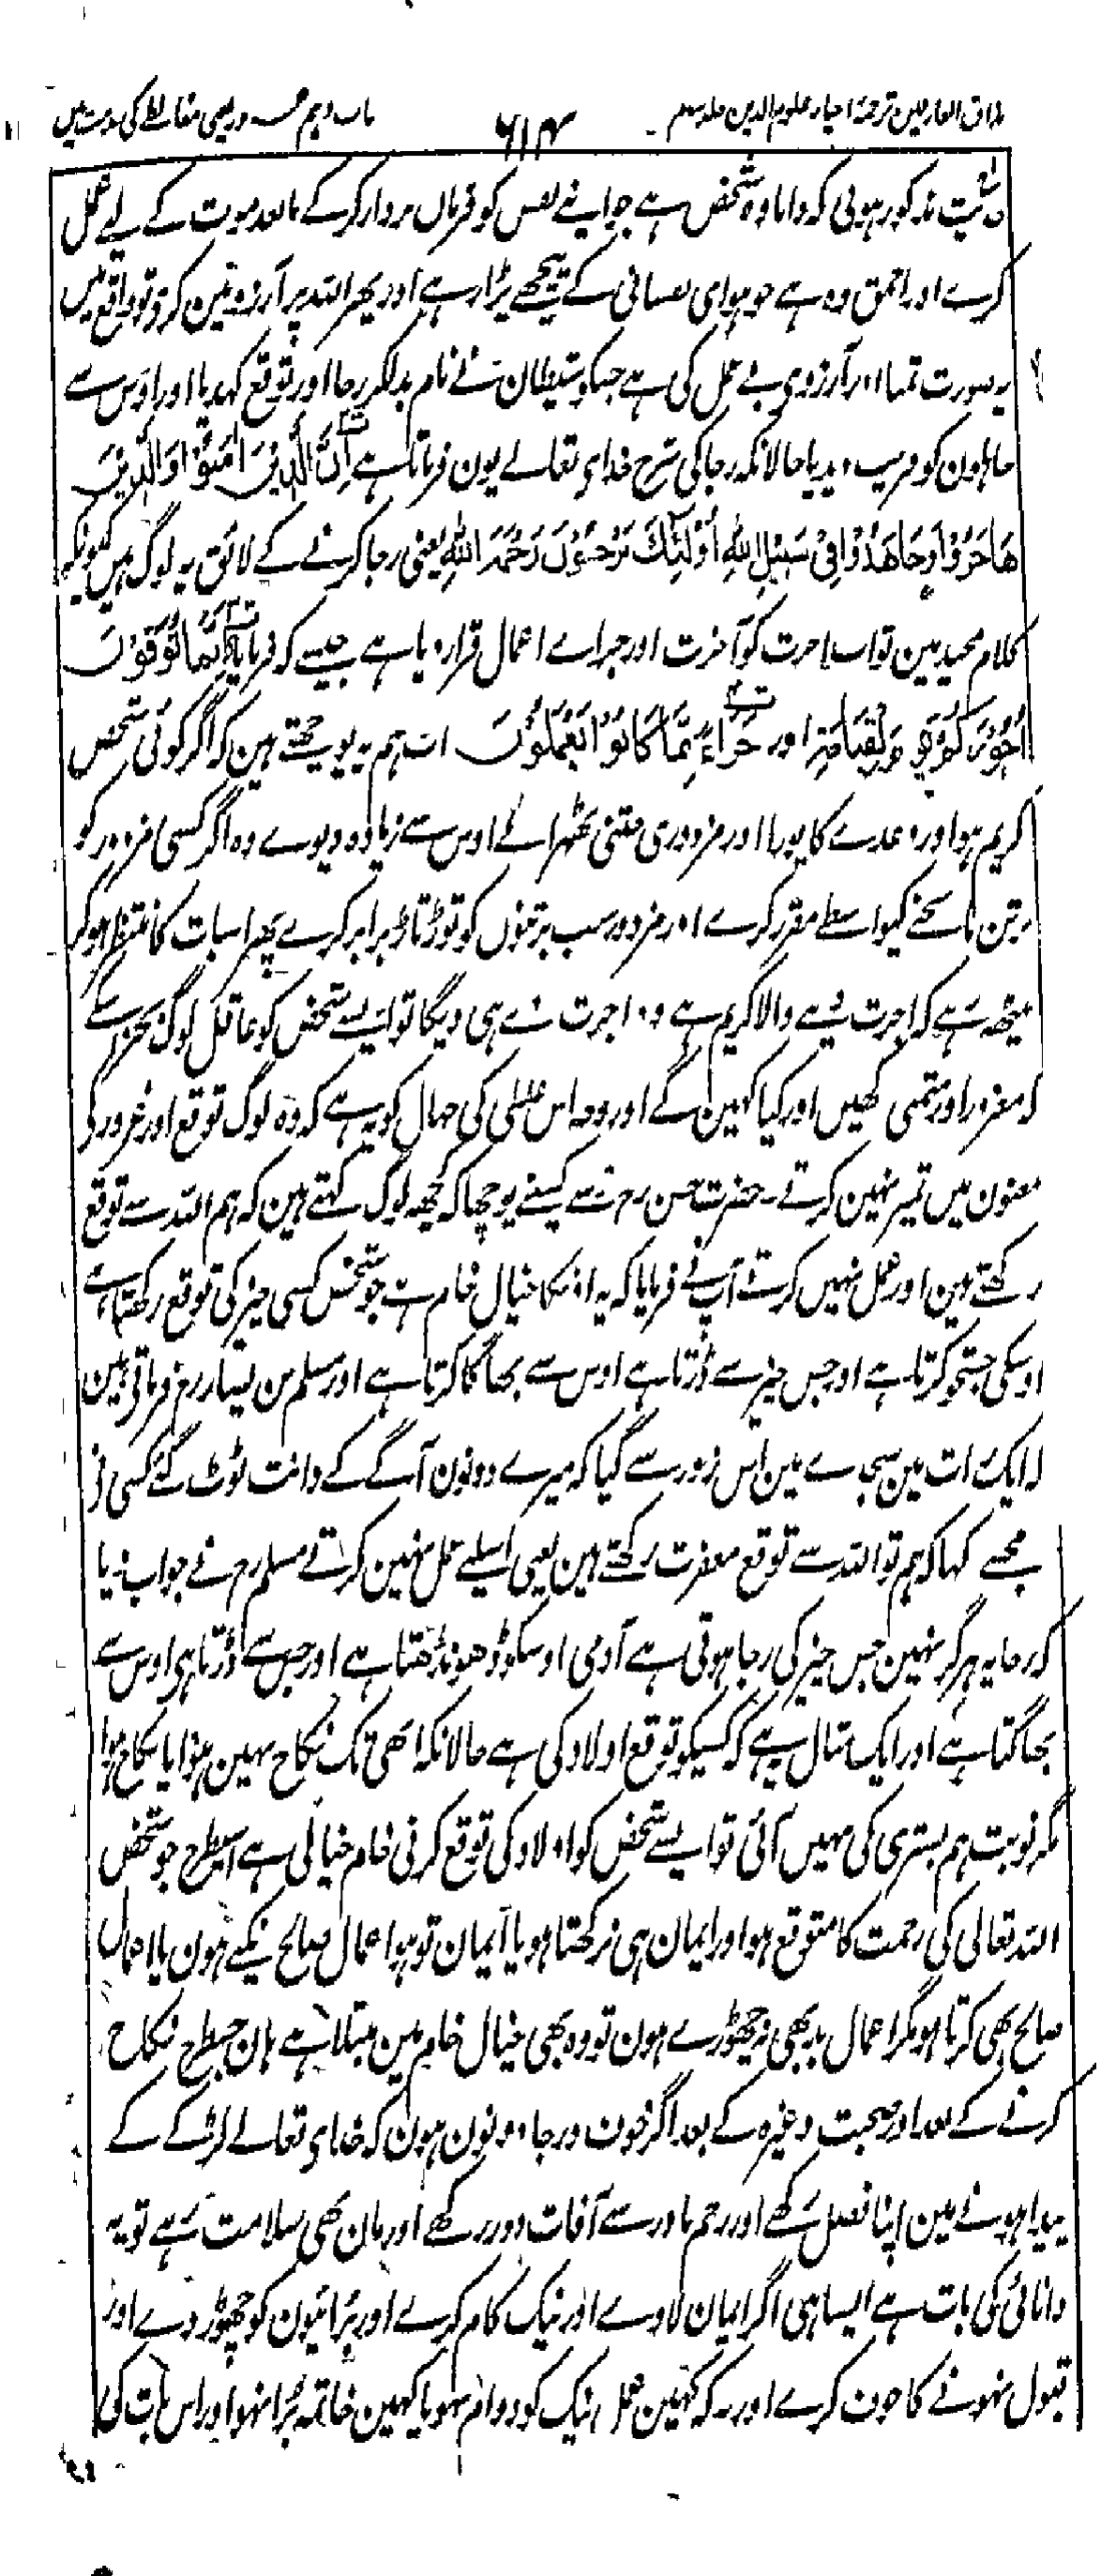 مذاق العارفین ترجمۂ احیاء علوم الدین جلد سوم ۶۱۴ باب دہم فریبی مغالطے کی مذمت میں
حدیث مذکور ہوئی کہ دانا وہ شخص ہے جو اپنے نفس کو فرماں بردار کرکے مابعد موت کے لیے عمل
کرے اور احمق وہ ہے جو ہوای نفسانی کے پیچھے پڑا رہے اور پھر اللہ پر آرزوئین کرے تو واقع میں
یہ صورت تمنا اور آرزوی بے عمل کی ہے جسکو شیطان نے نام بدلکر رجا اور توقع کہدیا اور اوس سے
جاہلون کو فریب دیدیا حالانکہ رجا کی شرح خدای تعالے یون فرماتا ہے اِنَّ الَّذِیْنَ اٰمَنُوْا وَالَّذِیْنَ
هَاجَرُوْا وَجَاهَدُوْا فِیْ سَبِیْلِ اللّٰهِ اُولٰٓئِكَ یَرْجُوْنَ رَحْمَةَ اللّٰهِ یعنی رجا کرنے کے لائق یہ لوگ ہیں کیونکہ
کلام مجید مین ثواب آخرت کو اجرت اور جزاے اعمال قرار دیا ہے جیسے کہ فرمایا اِنَّمَا تُوَفَّوْنَ
اُجُوْرَكُمْ یَوْمَ الْقِیَامَةِ اور جَزَآءً بِمَا كَانُوْا یَعْمَلُوْنَ اب ہم یہ پوچھتے ہین کہ اگر کوئی شخص
کریم ہو اور وعدے کا پورا اور مزدوری جتنی ٹھہرائے اوس سے زیادہ دیوے وہ اگر کسی مزدور کو
برتن مانجنے کیواسطے مقرر کرے اور مزدور سب برتنوں کو توڑتاڑ برابر کرے پھر اسبات کا منتظر ہوکر
بیٹھ رہے کہ اجرت دینے والا کریم ہے وہ اجرت دے ہی دیگا تو ایسے شخص کو عاقل لوگ بجز اسکے
کہ مغرور اور متمنی کہیں اور کیا کہین گے اور وجہ اس غلطی کی جہال کو یہ ہے کہ وہ لوگ توقع اور غرور کی
معنون میں تمیز نہین کرتے۔ حضرت حسن رح سے کسینے پوچھا کہ کچھ لوگ کہتے ہین کہ ہم اللہ سے توقع
رکھتے ہین اور عمل نہیں کرتے آپ نے فرمایا کہ یہ اونکا خیال خام ہے جو شخص کسی چیز کی توقع رکھتا ہے
اوسکی جستجو کرتا ہے اور جس چیز سے ڈرتا ہے اوس سے بھاگا کرتا ہے اور مسلم بن یسار رح فرماتی ہین
کہ ایک رات مین سجدے مین اس زور سے گیا کہ میرے دونون آگے کے دانت ٹوٹ گئے کسی نے
مجھسے کہا کہ ہم تو اللہ سے توقع مغفرت رکھتے ہین یعنی اسلیے عمل نہین کرتے مسلم رح نے جواب دیا
کہ رجا یہ ہرگز نہین جس چیز کی رجا ہوتی ہے آدمی اوسکو ڈھونڈھتا ہے اور جس سے ڈرتا ہی اوس سے
بھاگتا ہے اور ایک مثال یہ ہے کہ کسیکو توقع اولاد کی ہے حالانکہ ابھی تک نکاح نہین ہوا یا نکاح ہوا
مگر نوبت ہم بستری کی نہیں آئی تو ایسے شخص کو اولاد کی توقع کرنی خام خیالی ہے اسیطرح جو شخص
اللہ تعالی کی رحمت کا متوقع ہو اور ایمان ہی نہ رکھتا ہو یا ایمان تو ہو اعمال صالح نکیے ہون یا اعمال
صالح بھی کرتا ہو مگر اعمال بد بھی نچھوڑے ہون تو وہ بھی خیال خام مین مبتلا ہے ہان جسطرح نکاح
کرنے کے بعد اور صحبت وغیرہ کے بعد اگر خوف و رجا دونون ہون کہ خدای تعالے لڑکے کے
پیدا ہونے مین اپنا فضل رکھے اور رحم مادر سے آفات دور رکھے اور مان بھی سلامت رہے تو یہ
دانائی کی بات ہے ایسا ہی اگر ایمان لاوے اور نیک کام کرے اور برائیون کو چھوڑ دے اور
قبول نہونے کا خوف کرے اور یہ کہ کہین عمل نیک کو دوام نہو یا کہین خاتمہ برا نہو اور اس بات کی